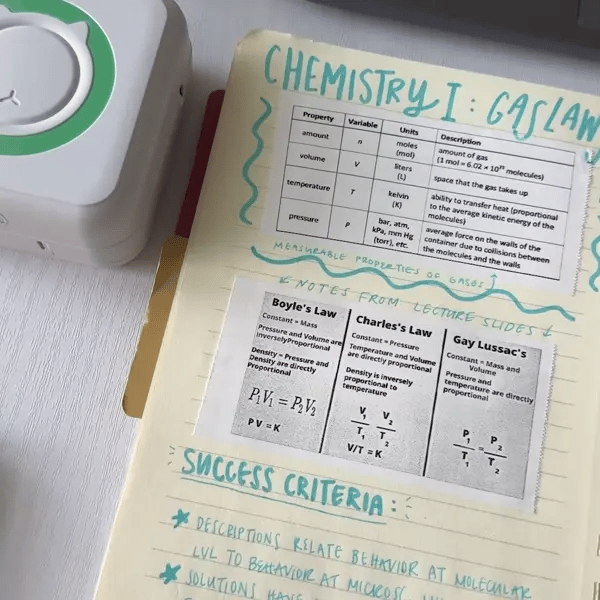 CHEMISTRY I: GAS LAW
Property Variable Units Description
amount n moles (mol) amount of gas
(1 mol = 6.02 × 10²³ molecules)
volume V liters (L) space that the gas takes up
temperature T kelvin (K) ability to transfer heat (proportional
to the average kinetic energy of the
molecules)
pressure P bar, atm, average force on the walls of the
kPa, mm Hg container due to collisions between
(torr), etc. the molecules and the walls
MEASURABLE PROPERTIES OF GASES
NOTES FROM LECTURE SLIDES
Boyle's Law
Constant = Mass
Pressure and Volume are
inverselyProportional
Density = Pressure and
Density are directly
Proportional
P₁V₁ = P₂V₂
PV = K
Charle's Law
Constant = Pressure
Temperature and Volume
are directly proportional
Density is inversely
proportional to
temperature
V₁ V₂
T₁ T₂
V/T = K
Gay Lussac's
Constant = Mass and
Volume
Pressure and
temperature are directly
proportional
P₁ = P₂
T₁ T₂
SUCCESS CRITERIA:
DESCRIPTIONS RELATE BEHAVIOR AT MOLECULAR
LVL TO BEHAVIOR AT MICROSC
SOLUTIONS HAVE